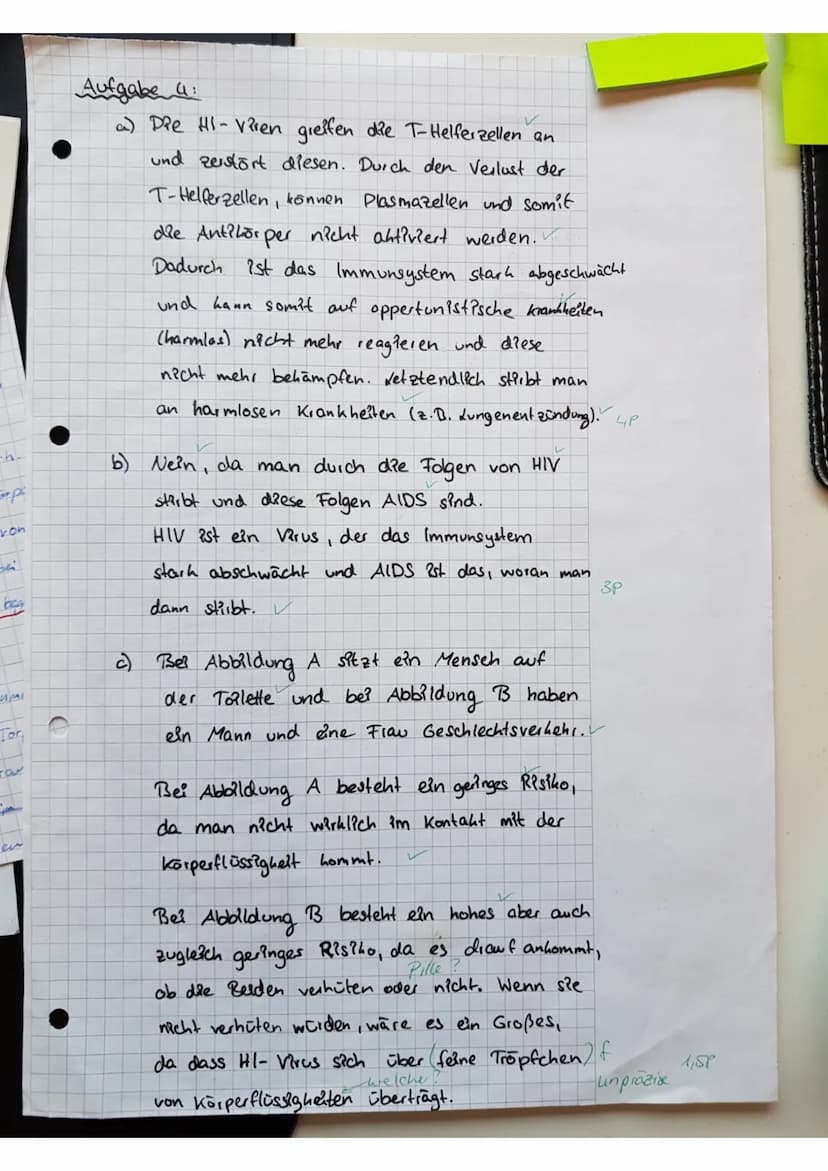 Aufgabe 4:
a) Die HI-Viren greifen die T-Helferzellen an
und zerstört diesen. Durch den Verlust der
T-Helferzellen, können Plasmazellen und somit
die Antikörper nicht aktiviert werden.
Dadurch ist das Immunsystem stark abgeschwächt
und kann somit auf oppertunistische Krankheiten
(harmlos) nicht mehr reagieren und diese
nicht mehr bekämpfen. Letztendlich stirbt man
an harmlosen Krankheiten (z.B. Lungenentzündung). 4P
b) Nein, da man durch die Folgen von HIV
stirbt und diese Folgen AIDS sind.
HIV ist ein Virus, der das Immunsystem
stark abschwächt und AIDS ist das, woran man
3P
dann stirbt.
c) Bei Abbildung A sitzt ein Mensch auf
der Toilette und bei Abbildung B haben
ein Mann und eine Frau Geschlechtsverkehr.
Bei Abbildung A besteht ein geringes Risiko,
da man nicht wirklich im Kontakt mit der
Körperflüssigkeit kommt.
Bei Abbildung B besteht ein hohes aber auch
zugleich geringes Risiko, da es drauf ankommt,
Pille?
ob die Beiden verhüten oder nicht. Wenn sie
nicht verhüten würden, wäre es ein Großes,
da dass HI-Virus sich über (feine Tröpfchen) f 1,5P
welche? unpräzise
von Körperflüssigkeiten überträgt.